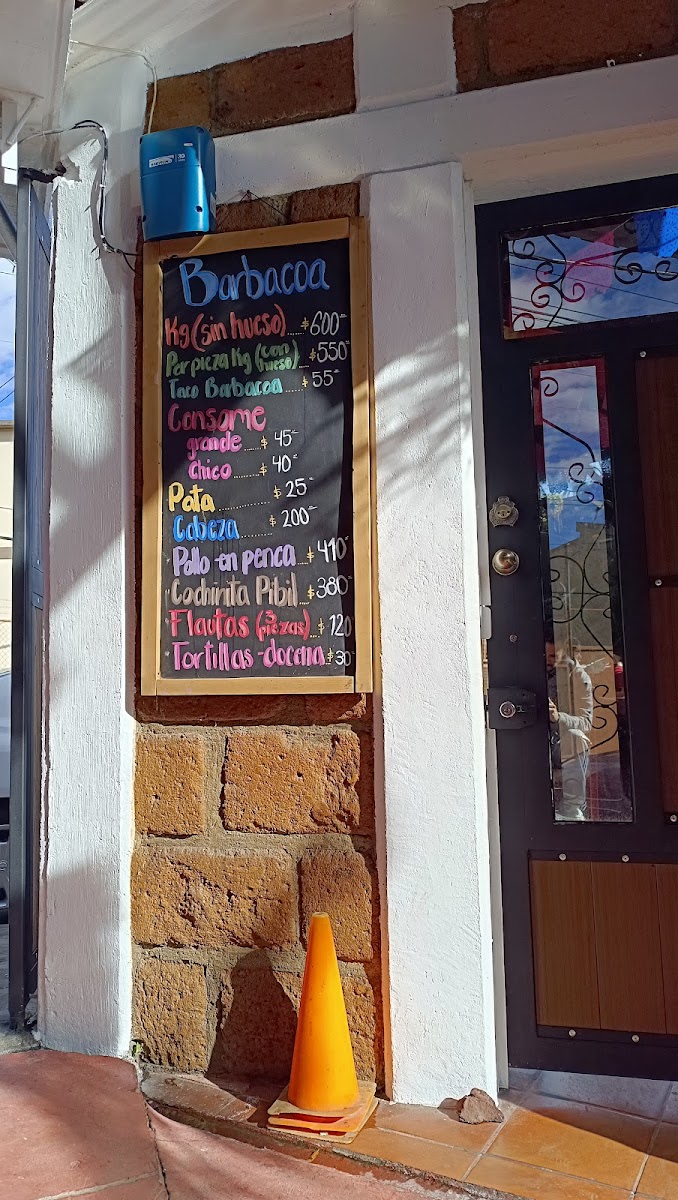 Barbacoa
Kg (sin hueso).....$600
Por pieza Kg (con hueso)...$550
Taco Barbacoa.....$55
Consome
grande.....$45
Chico.....$40
Pata.........$25
Cabeza.......$200
Pollo en penca...$410
Cochinita Pibil...$380
Flautas (3 piezas)..$120
Tortillas-docena $30